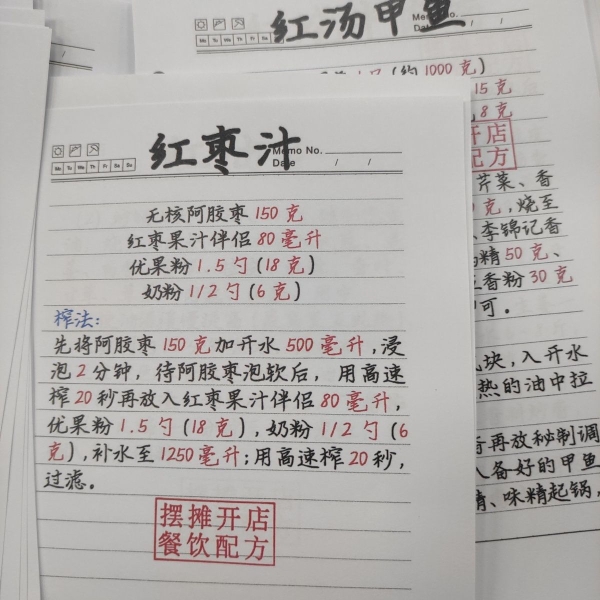 红汤甲鱼
(约1000克)
15克
8克
开店
配方
芹菜、香
克,烧至
李锦记香
精50克、
香粉30克
可。
块,入开水
热的油中拉
再放秘制调
入备好的甲鱼
精、味精起锅,
红枣汁
Memo No.
Date / /
Mo Tu We Th Fr Sa Su
无核阿胶枣150克
红枣果汁伴侣80毫升
优果粉1.5勺(18克)
奶粉1/2勺(6克)
榨法:
先将阿胶枣150克加开水500毫升,浸
泡2分钟,待阿胶枣泡软后,用高速
榨20秒再放入红枣果汁伴侣80毫升,
优果粉1.5勺(18克),奶粉1/2勺(6
克),补水至1250毫升;用高速榨20秒,
过滤。
摆摊开店
餐饮配方